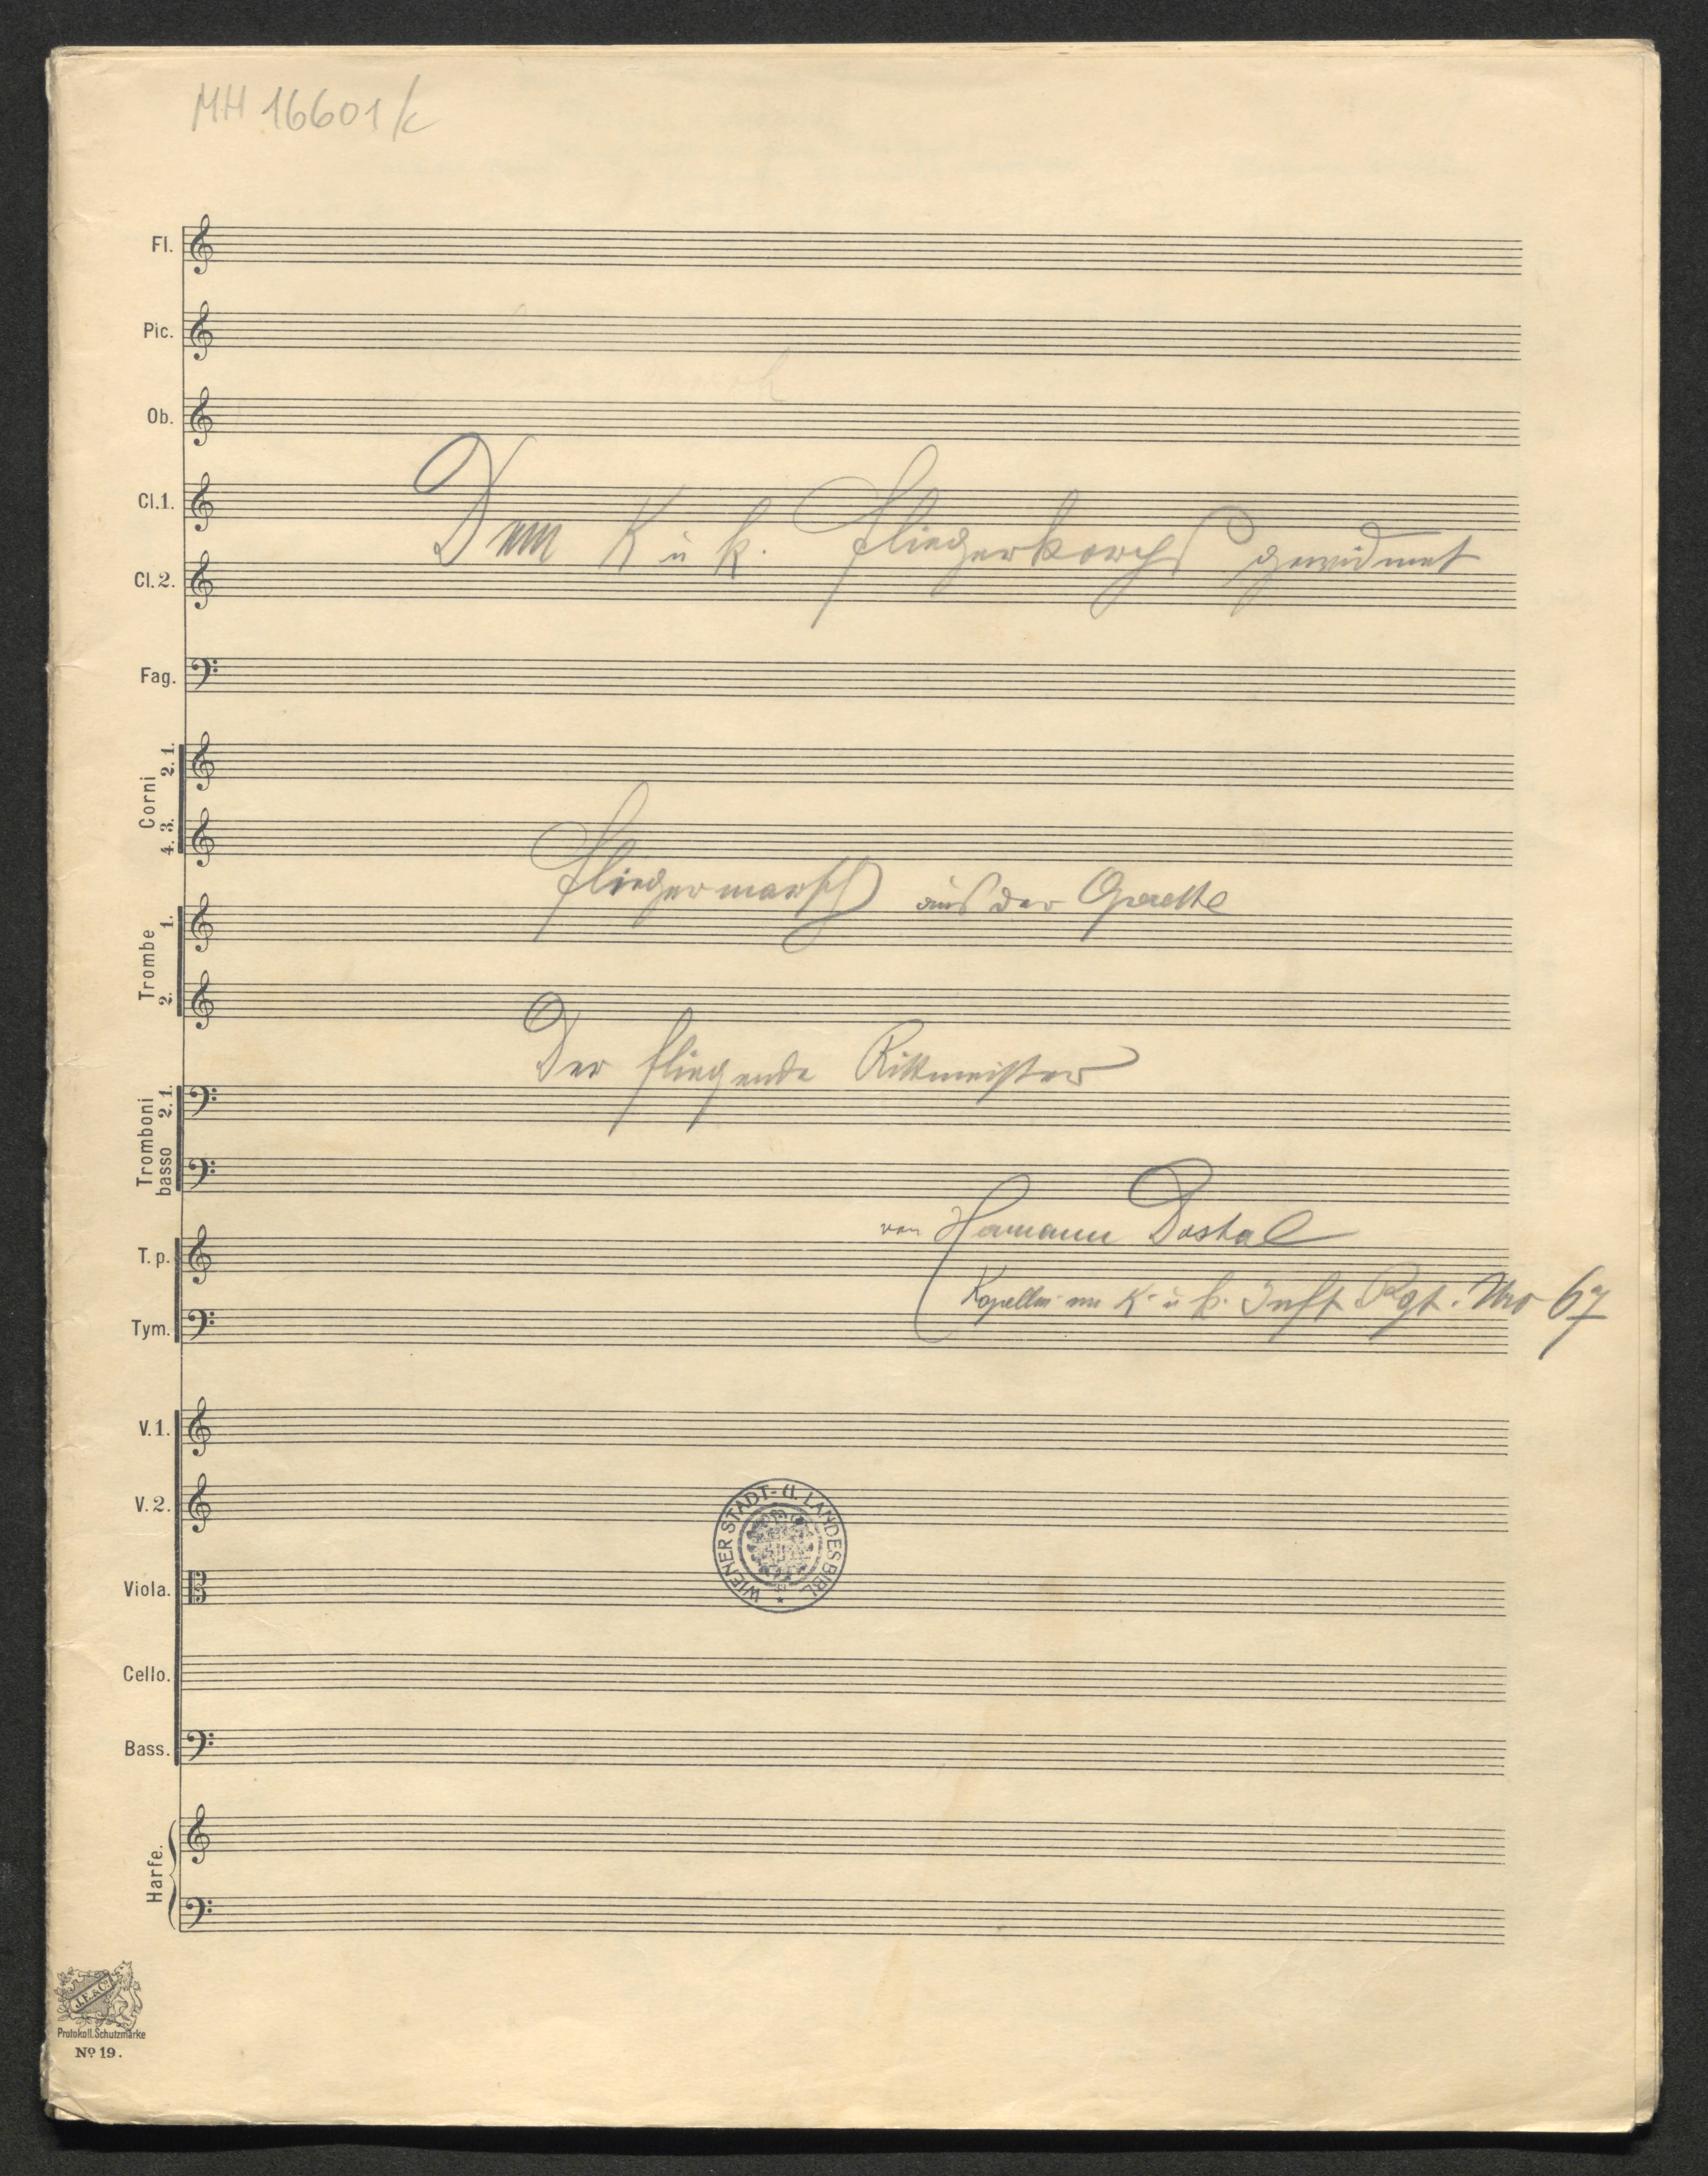 MH 16601/c
Fl.
Pic.
Ob.
Cl.1.
Dem K u k. Fliegerkorps gewidmet
Cl.2.
Fag.
Corni 2. 1.
4. 3.
Fliegermarsch aus der Operette
Trombe 1.
2.
Der fliegende Rittmeister
Tromboni 2. 1.
basso
von Hermann Dostal
T. p.
Kapellm im K. u k. Inft Rgt. Nro 67
Tym.
V. 1.
V. 2.
WIENER STADT- U. LANDESBIBL.
Viola.
Cello.
Bass.
Harfe.
J.E.& Co.
Protokoll.Schutzmarke
No 19.